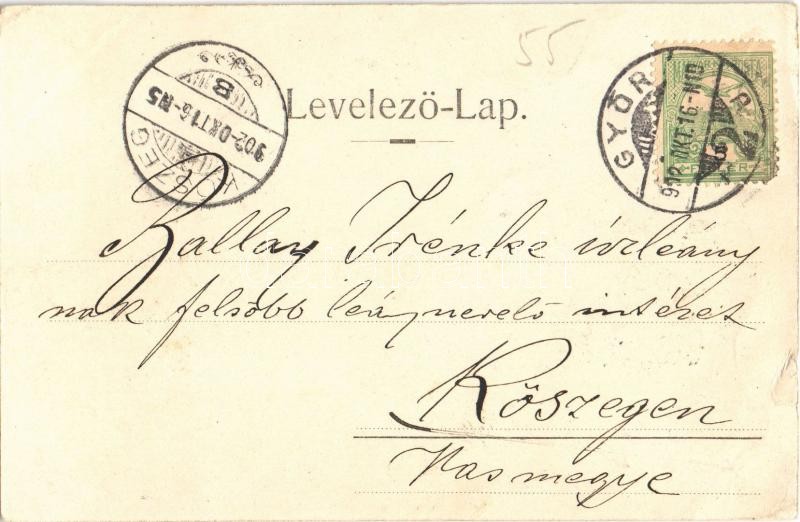 55
Levelező-Lap.
KŐSZEG
902 OKT. 16. N5
B
GYŐR
902 OKT. 16. N10
Kallay Irénke úrleány
nak felsőbb leánynevelő intézet
Kőszegen
Vasmegye